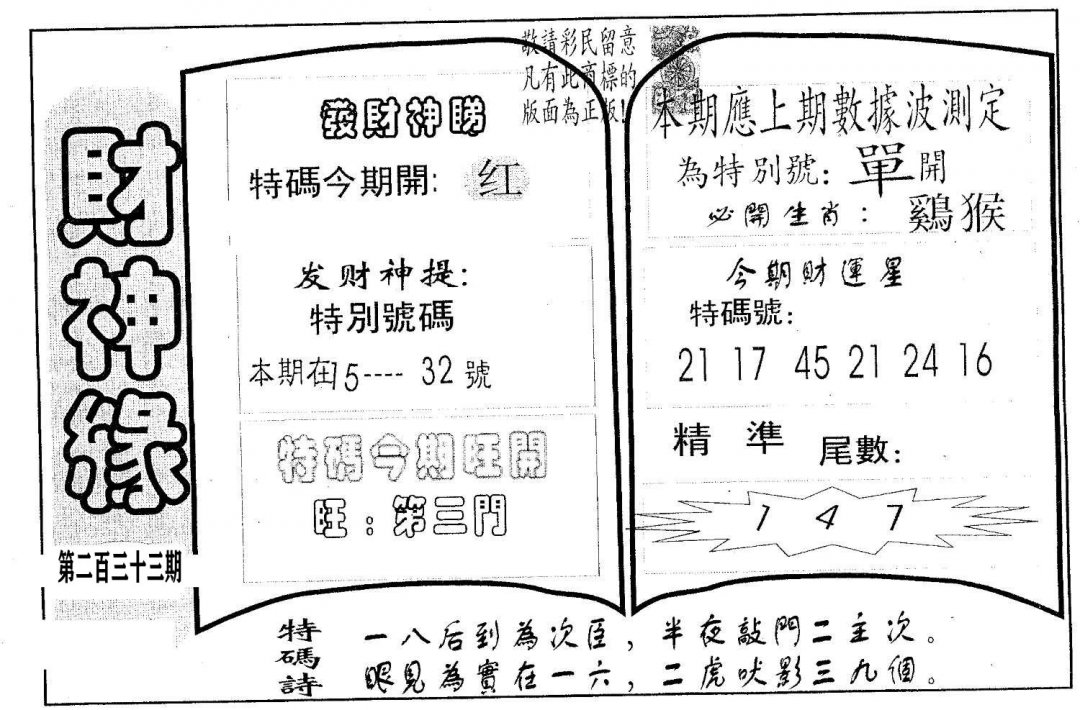 財神緣
第二百三十三期
敬請彩民留意
凡有此商標的
版面為正版!
發財神睇
特碼今期開: 红
发财神提:
特別號碼
本期在15---- 32 號
特碼今期旺開
旺:第三門
本期應上期數據波測定
為特別號: 單開
必開生肖: 鷄猴
今期財運星
特碼號:
21 17 45 21 24 16
精 準 尾數:
1 4 7
特碼詩
一八后到為次臣,半夜敲門二主次。
眼見為實在一六,二虎吠影三九個。